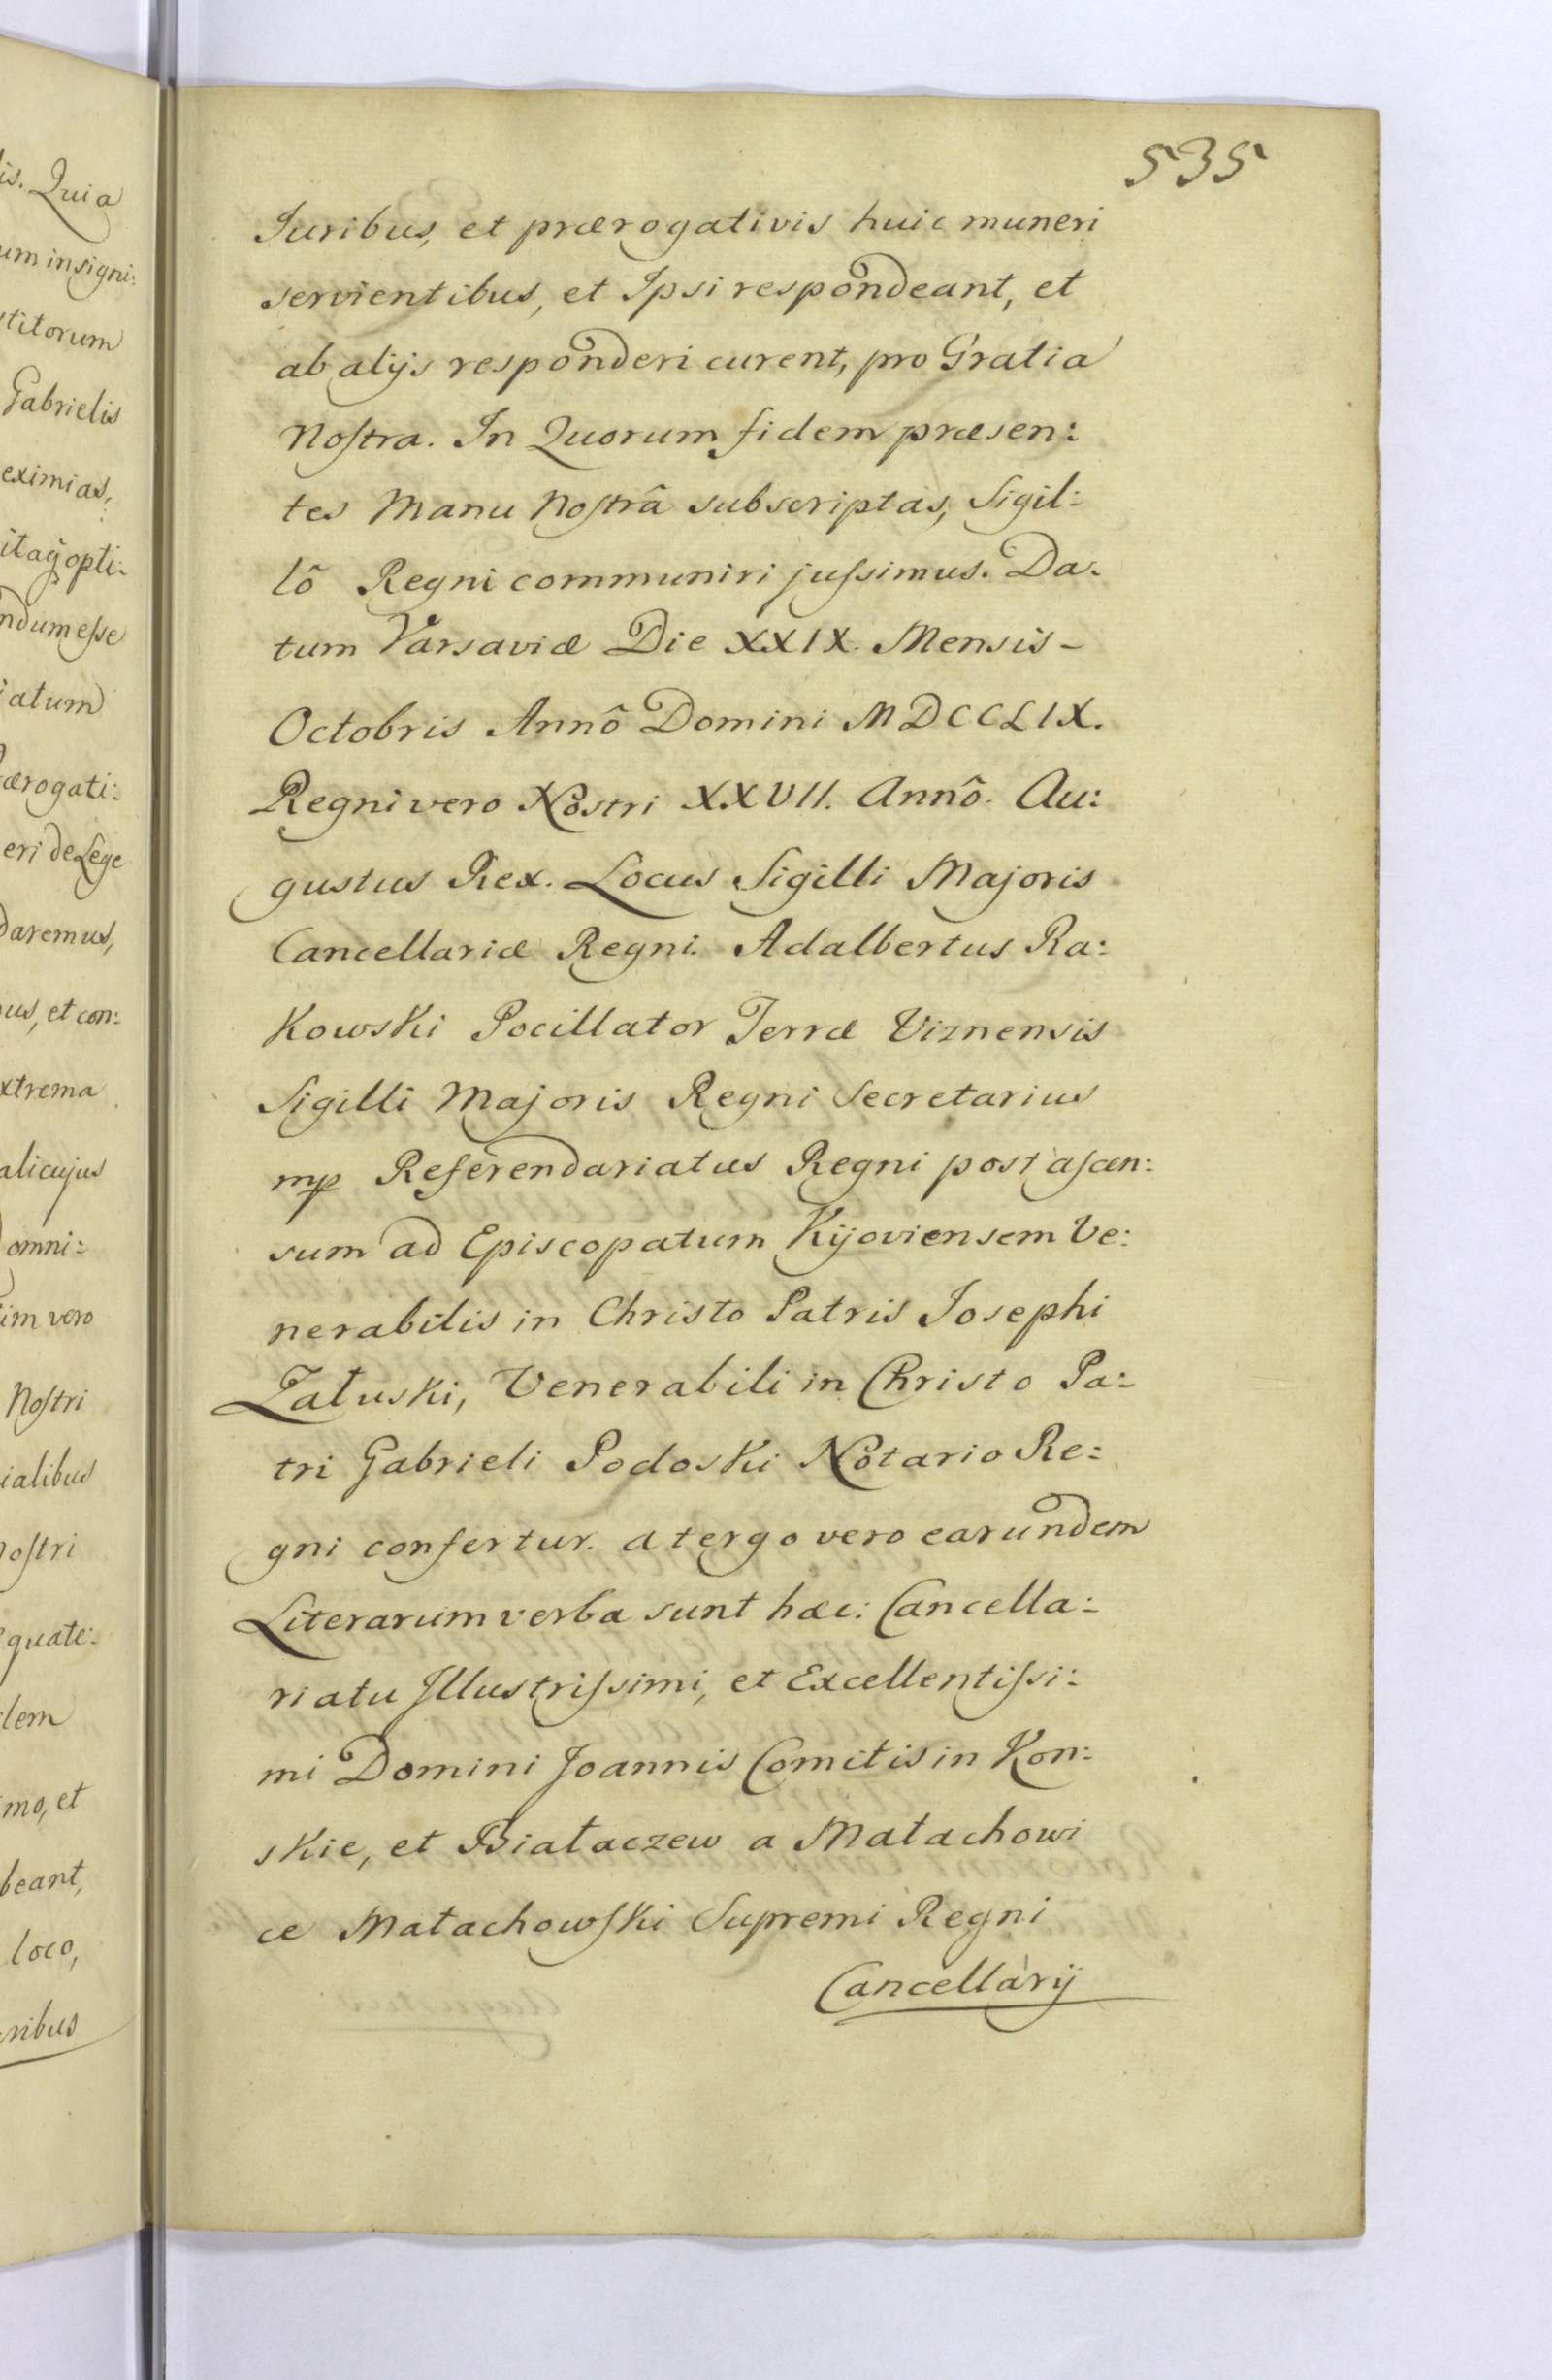 535
is. Quia
um insigni:
titorum
Gabrielis
eximias,
opti:
ndum esse
iatum
ærogati:
eri de Lege
daremus,
us, et con:
xtrema
alicujus
omni:
im vero
Nostri
ialibus
nostri
quate:
dem
mo, et
beant,
loco,
ribus
Juribus, et prærogativis huic muneri
servientibus, et Ipsi respondeant, et
ab alijs responderi curent, pro Gratia
Nostra. In Quorum fidem præsen:
tes Manu Nostrâ subscriptas, Sigil:
lô Regni communiri jussimus. Da:
tum Varsaviæ Die XXIX. Mensis -
Octobris Annô Domini MDCCLIX.
Regni vero Nostri XXVII. Annô. Au:
gustus Rex. Locus Sigilli Majoris
Cancellariæ Regni. Adalbertus Ra:
Kowski Pocillator Terræ Viznensis
Sigilli Majoris Regni Secretarius
mp Referendariatus Regni post ascen:
sum ad Episcopatum Kijoviensem Ve:
nerabilis in Christo Patris Josephi
Załuski, Venerabili in Christo Pa:
tri Gabrieli Podoski Notario Re:
gni confertur. a tergo vero earundem
Literarum verba sunt hæc: Cancella:
riatu Illustrissimi, et Excellentissi:
mi Domini Joannis Comitis in Kon:
skie, et Białaczew a Małachowi
ce Małachowski Supremi Regni
Cancellarij